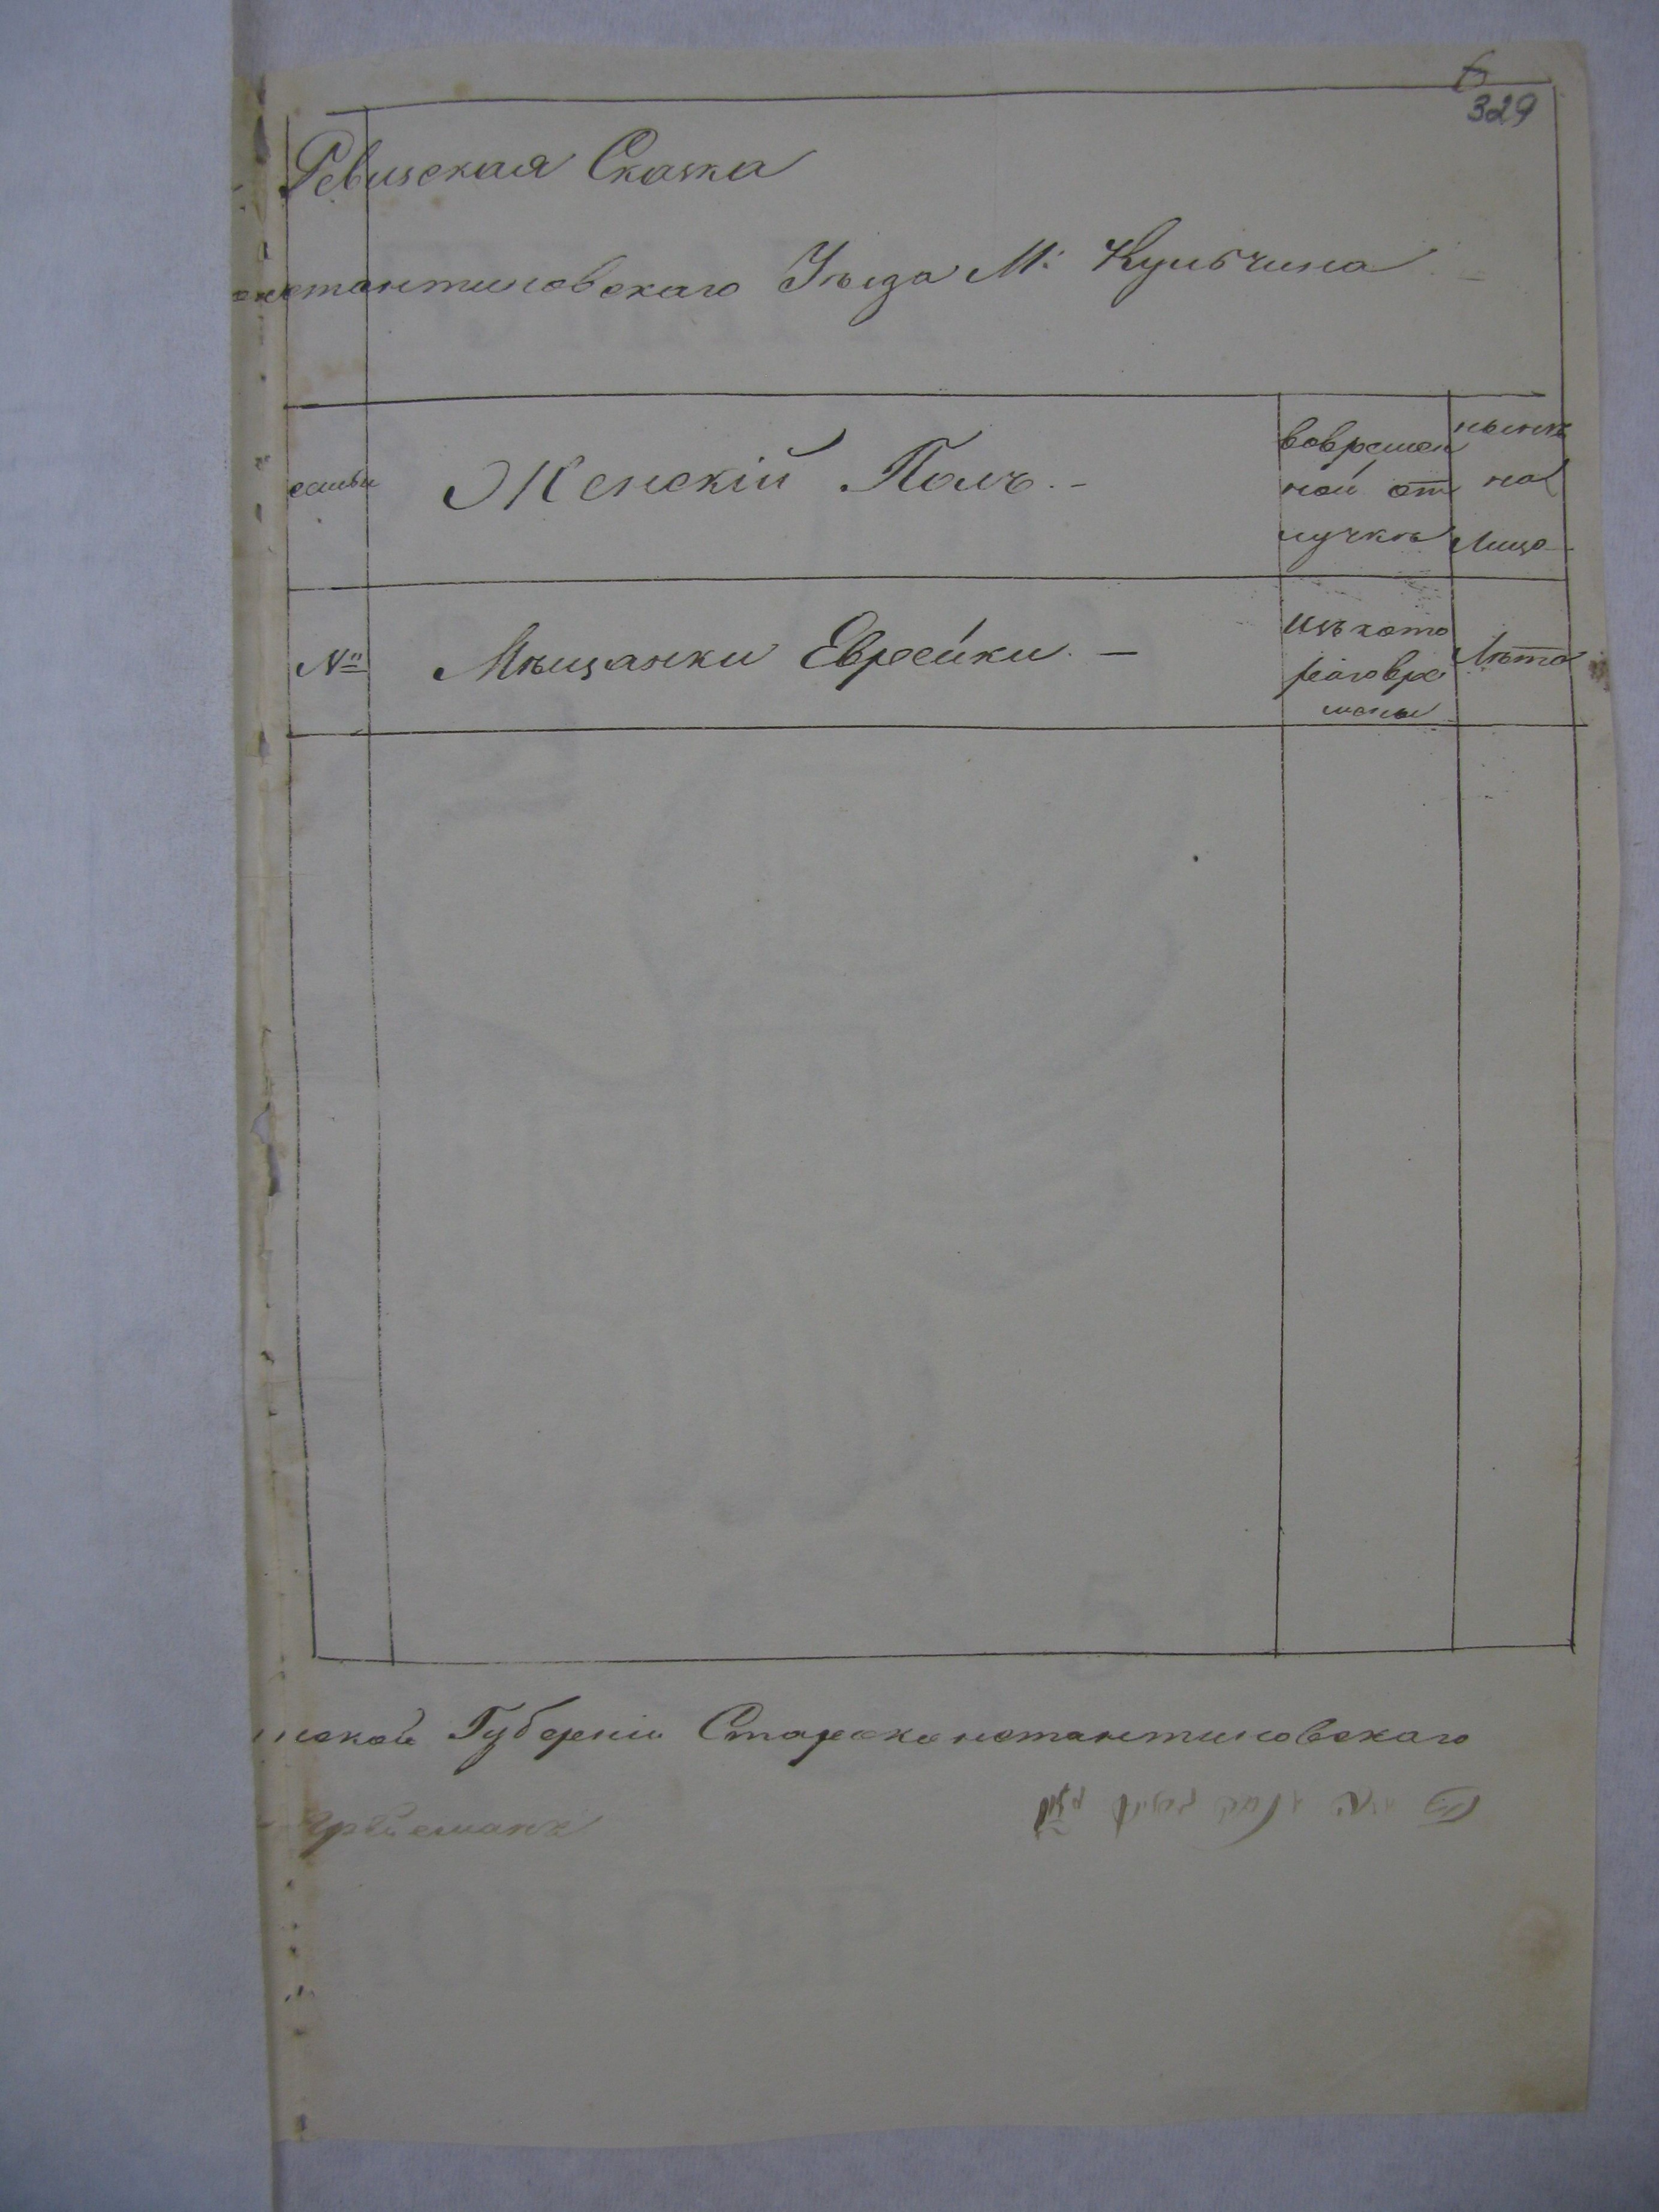 6
329
Ревизская Сказка
онстантиновскаго Уѣзда М: Кульчина
семьи
Женскій Полъ.-
вовремен
ной от
лучкѣ
нынѣ
на
лицо
№
Мѣщанки Еврейки. —
Изъ кото
раго вре
мени
Лѣта
нской Губерніи Староконстантиновскаго